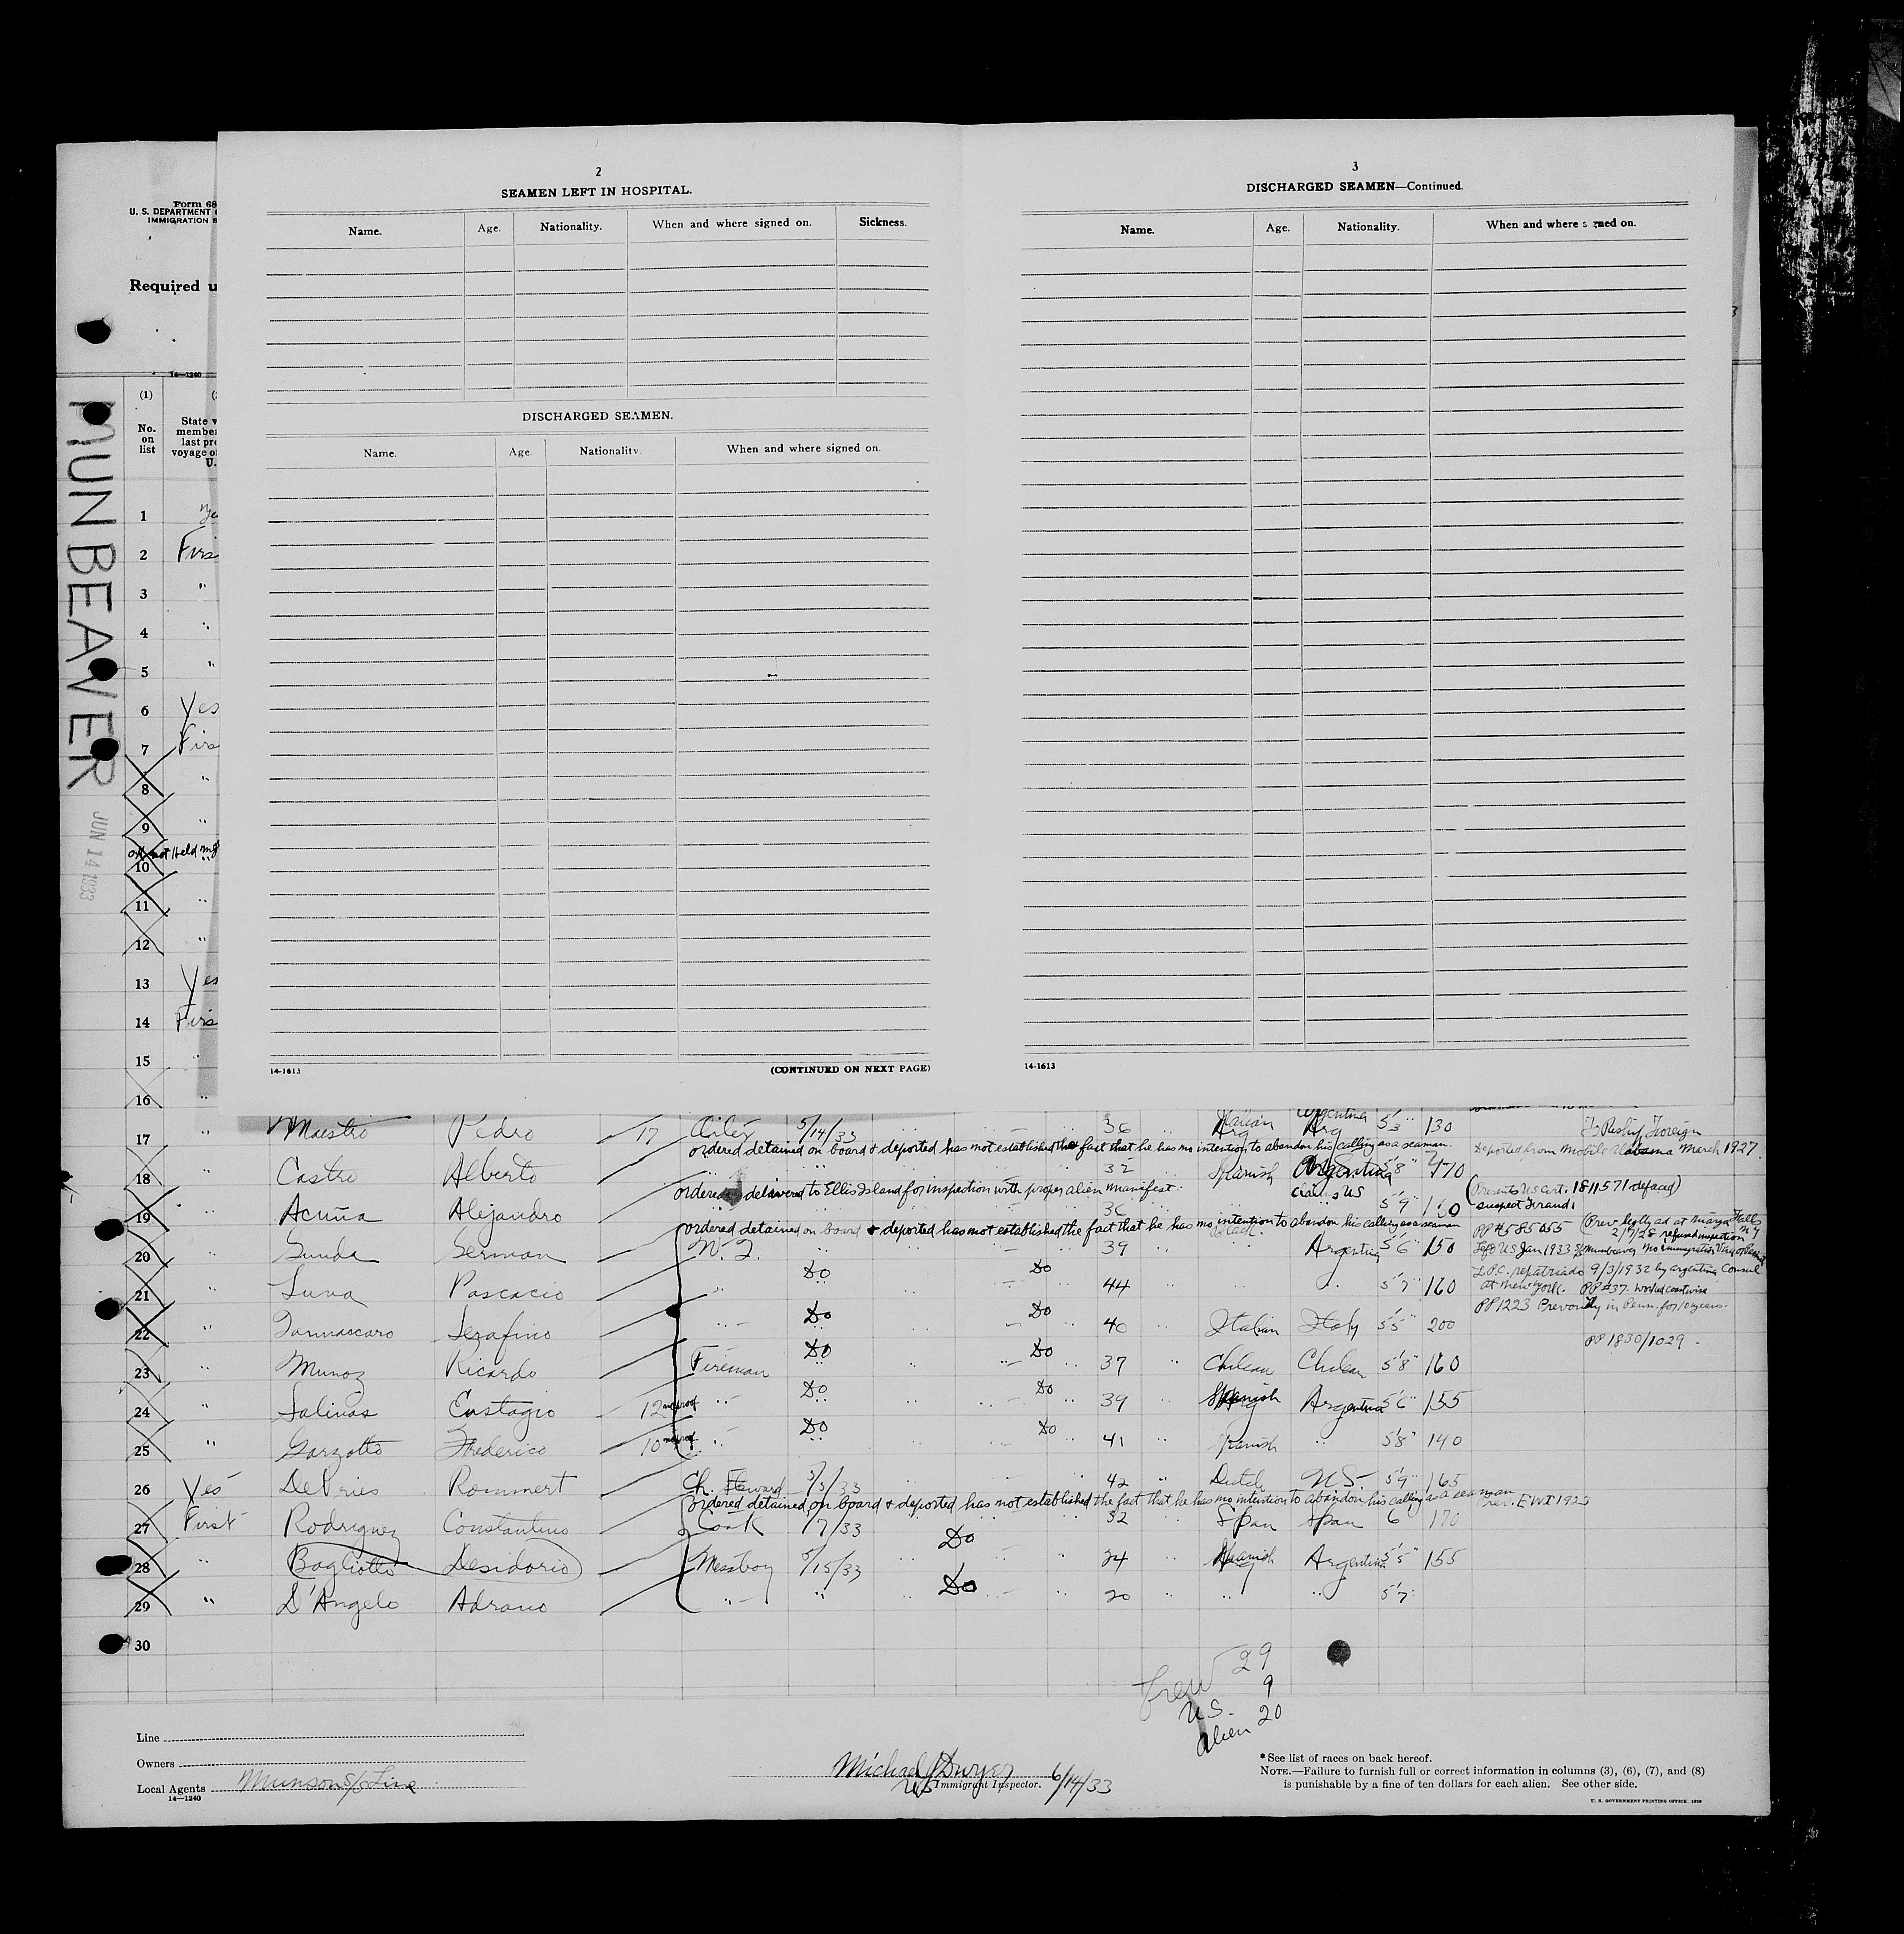 2
SEAMEN LEFT IN HOSPITAL.
Name. Age. Nationality. When and where signed on. Sickness.
DISCHARGED SEAMEN.
Name. Age. Nationality. When and where signed on.
14-1613 (CONTINUED ON NEXT PAGE)
3
DISCHARGED SEAMEN—Continued.
Name. Age. Nationality. When and where signed on.
14-1613
Form 68
U. S. DEPARTMENT
IMMIGRATION S
Required u
14—1240
MUNBEAVER
JUN 14 1933
(1)
No. on list
State w
member
last pre
voyage o
U.
1
2 Firs
3 "
4 "
5 "
6 Yes
7 Firs
8 "
9 "
not Held
10 "
11 "
12 "
13 Yes
14 Firs
15 "
16 "
17 " Maestro Pedro 17 Oiler 5/14/33 36 Italian Arg Argentina Arg 5'3" 130
ordered detained on board & deported has not established the fact that he has no intention to abandon his calling as a seaman.
Deported from Mobile Alabama March 1927.
18 " Castro Alberto 32 Spanish Argentina 5'8" 170
ordered delivered to Ellis Island for inspection with proper alien manifest.
claims US
(Presents US cert. 1811571 defaced)
suspect Fraud.
19 " Acuña Alejandro 36 5'9" 160
ordered detained on board & deported has not established the fact that he has no intention to abandon his calling as a seaman
PP#585055
2/7/28 refused inspection
20 " German W. T. 39 Black Argentina 5'6" 150
Left US Jan 1933
L.P.C. repatriado 9/3/1932 by Argentine Consul
at New York. PP#37. Worked coastwise
21 " Luna Pascacio Do Do 44 5'7" 160
PP1223 in Penn. for 10 years.
22 " Serafino Do Do 40 Italian Italy 5'5" 200
PP 1830/1029
23 " Munoz Ricardo Fireman Do Do 37 Chilean Chilean 5'8" 160
24 " Salinas Eustagio 12 Do Do 39 Spanish Argentina 5'6" 155
25 " Garzotto Frederico 10 Do Do 41 Spanish " 5'8" 140
26 Yes DeVries Rommert Ch. Steward 5/5/33 42 " Dutch U.S. 5'9" 165
ordered detained on board & deported has not established the fact that he has no intention to abandon his calling as a seaman
Prev. EWI 1923
27 First Rodriguez Constantino Cook /7/33 Do 32 Span Span 6 170
28 " Bogliotto Desidario Messboy 5/15/33 Do 24 Spanish Argentina 5'5" 155
29 " D'Angelo Adrano " 20 " " 5'7
30
Crew 29
U.S. 9
Alien 20
Line
Owners
Local Agents Munson S/S Line
14—1240
Michael J Dwyer 6/14/33
US Immigrant Inspector.
* See list of races on back hereof.
NOTE.—Failure to furnish full or correct information in columns (3), (6), (7), and (8)
is punishable by a fine of ten dollars for each alien. See other side.
U. S. GOVERNMENT PRINTING OFFICE.